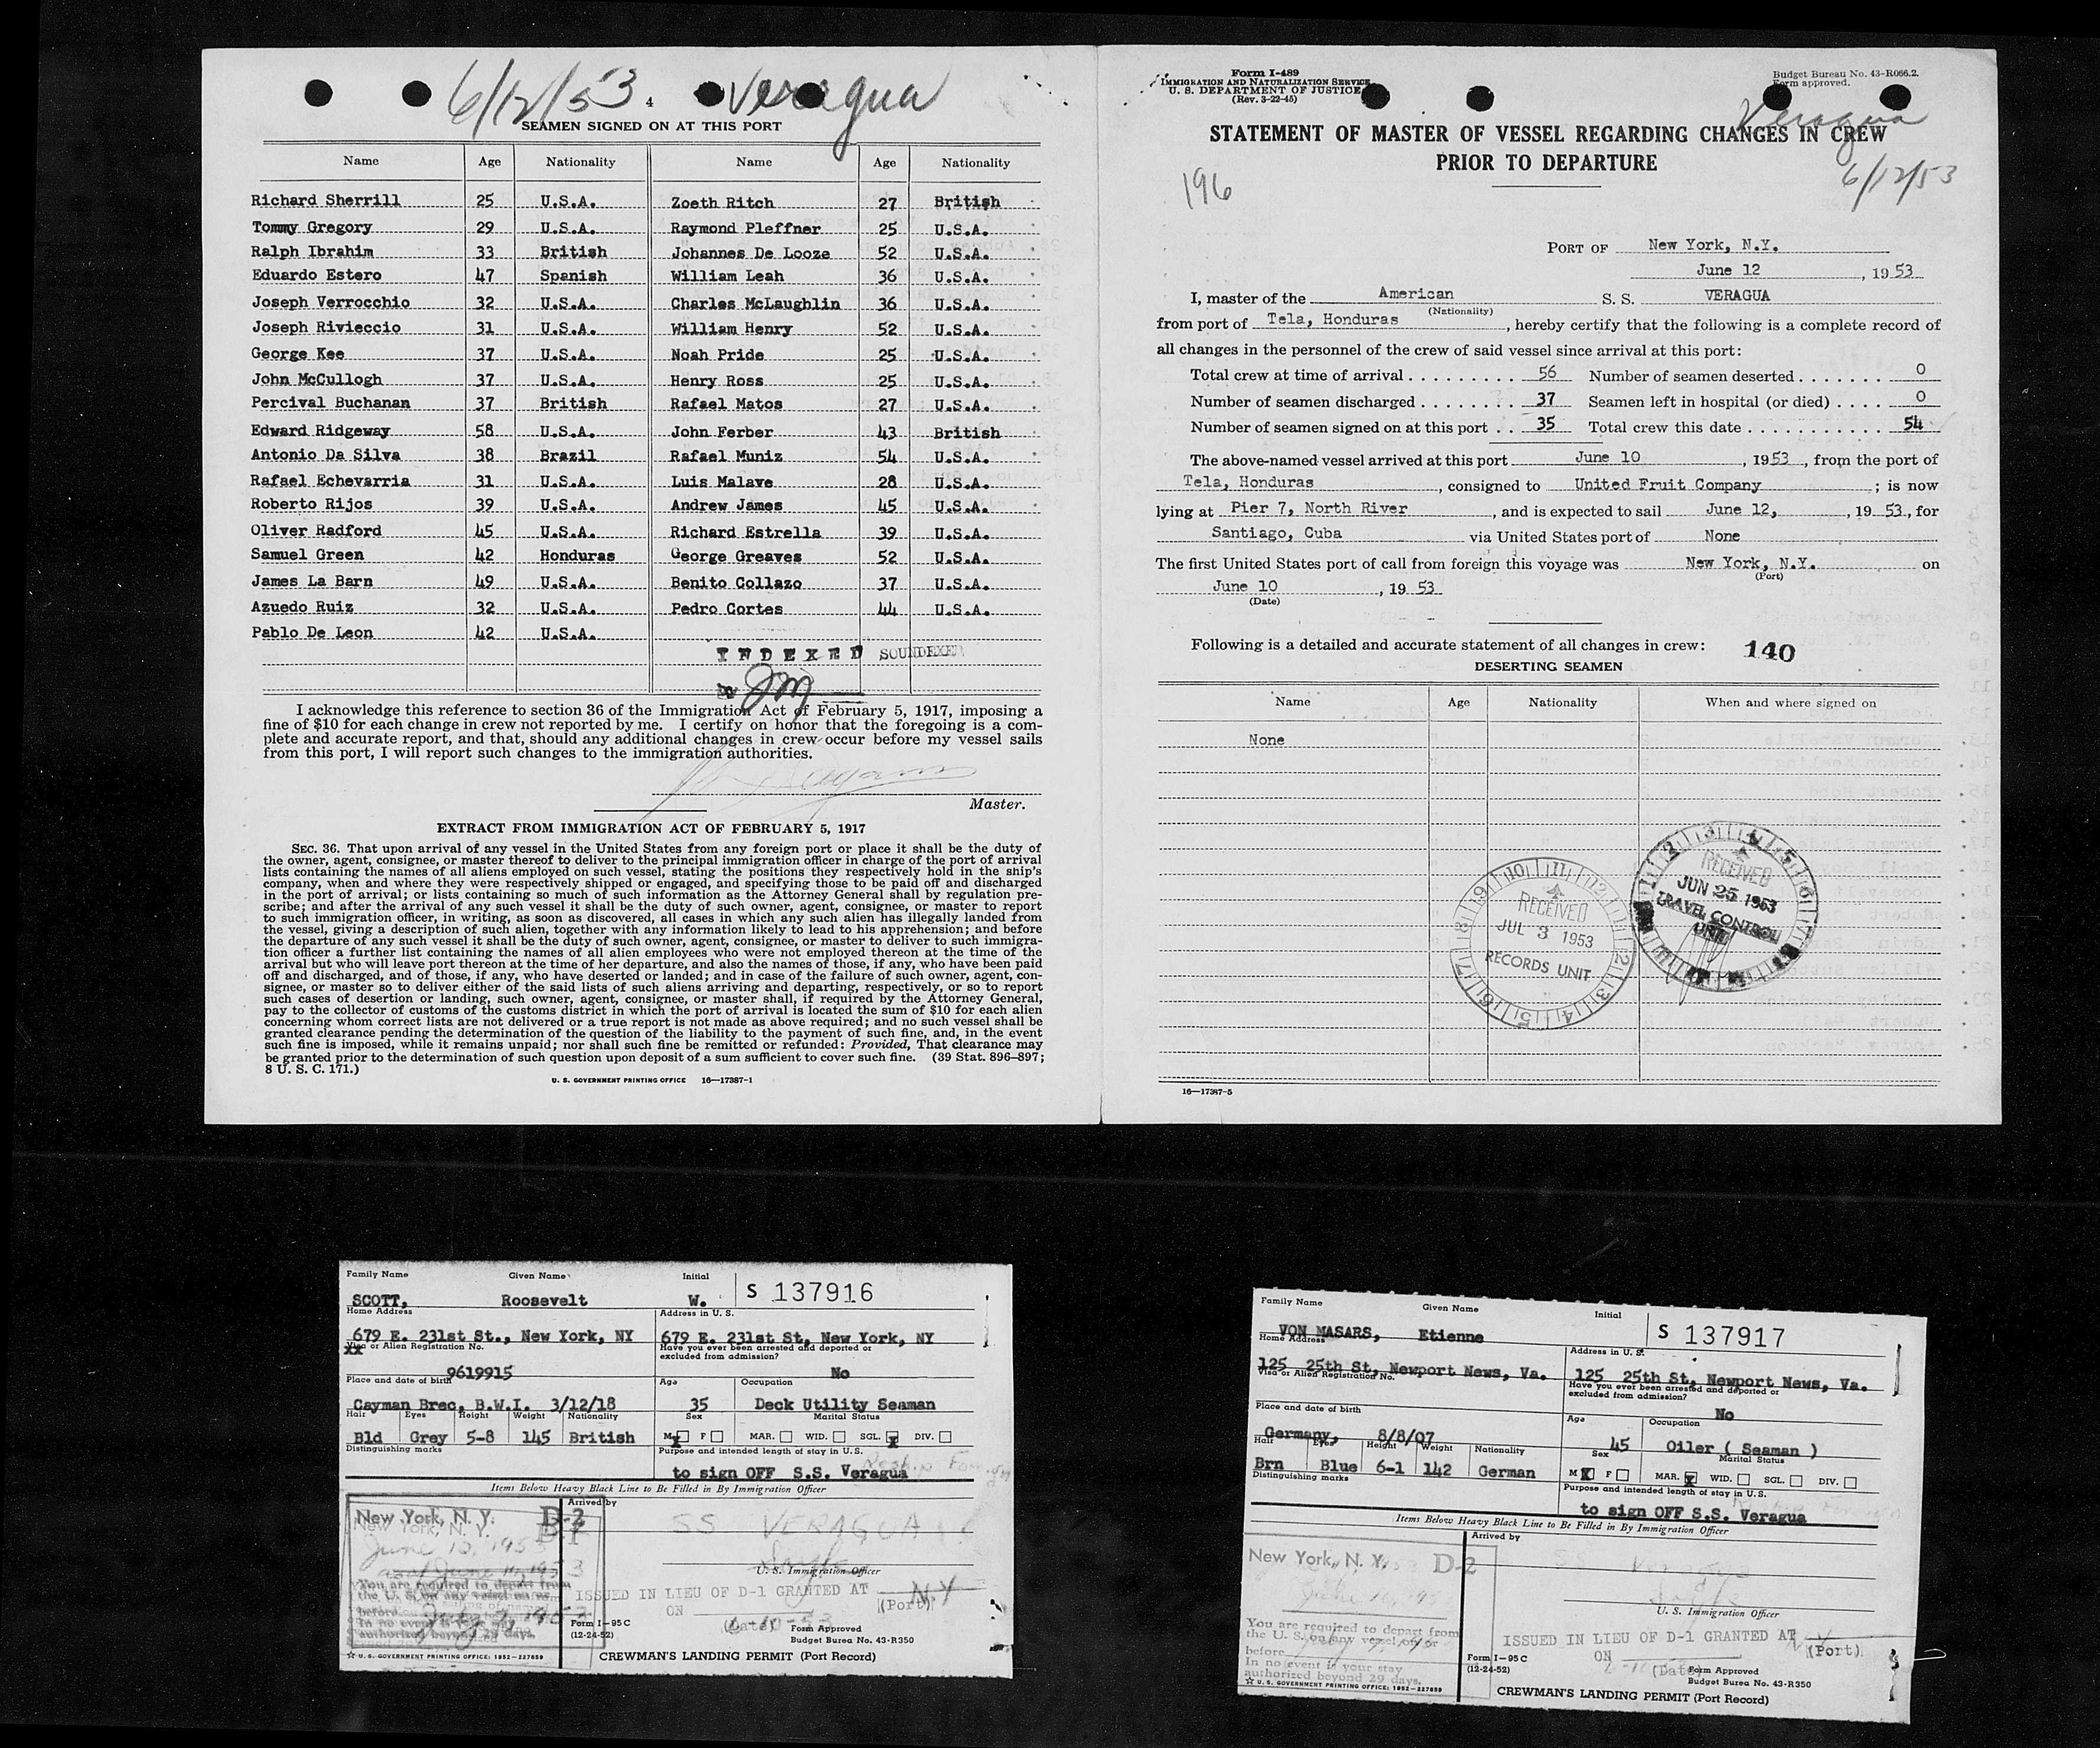 6/12/53 4 Veragua
SEAMEN SIGNED ON AT THIS PORT
Name Age Nationality Name Age Nationality
Richard Sherrill 25 U.S.A. Zoeth Ritch 27 British
Tommy Gregory 29 U.S.A. Raymond Pleffner 25 U.S.A.
Ralph Ibrahim 33 British Johannes De Looze 52 U.S.A.
Eduardo Estero 47 Spanish William Leah 36 U.S.A.
Joseph Verrocchio 32 U.S.A. Charles McLaughlin 36 U.S.A.
Joseph Rivieccio 31 U.S.A. William Henry 52 U.S.A.
George Kee 37 U.S.A. Noah Pride 25 U.S.A.
John McCullogh 37 U.S.A. Henry Ross 25 U.S.A.
Percival Buchanan 37 British Rafael Matos 27 U.S.A.
Edward Ridgeway 58 U.S.A. John Ferber 43 British
Antonio Da Silva 38 Brazil Rafael Muniz 54 U.S.A.
Rafael Echevarria 31 U.S.A. Luis Malave 28 U.S.A.
Roberto Rijos 39 U.S.A. Andrew James 45 U.S.A.
Oliver Radford 45 U.S.A. Richard Estrella 39 U.S.A.
Samuel Green 42 Honduras George Greaves 52 U.S.A.
James La Barn 49 U.S.A. Benito Collazo 37 U.S.A.
Azuedo Ruiz 32 U.S.A. Pedro Cortes 44 U.S.A.
Pablo De Leon 42 U.S.A.
INDEXED SOUNDEXED
I acknowledge this reference to section 36 of the Immigration Act of February 5, 1917, imposing a
fine of $10 for each change in crew not reported by me. I certify on honor that the foregoing is a com-
plete and accurate report, and that, should any additional changes in crew occur before my vessel sails
from this port, I will report such changes to the immigration authorities.
Master.
EXTRACT FROM IMMIGRATION ACT OF FEBRUARY 5, 1917
SEC. 36. That upon arrival of any vessel in the United States from any foreign port or place it shall be the duty of
the owner, agent, consignee, or master thereof to deliver to the principal immigration officer in charge of the port of arrival
lists containing the names of all aliens employed on such vessel, stating the positions they respectively hold in the ship's
company, when and where they were respectively shipped or engaged, and specifying those to be paid off and discharged
in the port of arrival; or lists containing so much of such information as the Attorney General shall by regulation pre-
scribe; and after the arrival of any such vessel it shall be the duty of such owner, agent, consignee, or master to report
to such immigration officer, in writing, as soon as discovered, all cases in which any such alien has illegally landed from
the vessel, giving a description of such alien, together with any information likely to lead to his apprehension; and before
the departure of any such vessel it shall be the duty of such owner, agent, consignee, or master to deliver to such immigra-
tion officer a further list containing the names of all alien employees who were not employed thereon at the time of the
arrival but who will leave port thereon at the time of her departure, and also the names of those, if any, who have been paid
off and discharged, and of those, if any, who have deserted or landed; and in case of the failure of such owner, agent, con-
signee, or master so to deliver either of the said lists of such aliens arriving and departing, respectively, or so to report
such cases of desertion or landing, such owner, agent, consignee, or master shall, if required by the Attorney General,
pay to the collector of customs of the customs district in which the port of arrival is located the sum of $10 for each alien
concerning whom correct lists are not delivered or a true report is not made as above required; and no such vessel shall be
granted clearance pending the determination of the question of the liability to the payment of such fine, and, in the event
such fine is imposed, while it remains unpaid; nor shall such fine be remitted or refunded: Provided, That clearance may
be granted prior to the determination of such question upon deposit of a sum sufficient to cover such fine. (39 Stat. 896–897;
8 U. S. C. 171.)
U. S. GOVERNMENT PRINTING OFFICE 16—17387-1
Form I-489
IMMIGRATION AND NATURALIZATION SERVICE
U. S. DEPARTMENT OF JUSTICE
(Rev. 3-22-45)
Budget Bureau No. 43-R066.2.
Form approved.
Veragua
STATEMENT OF MASTER OF VESSEL REGARDING CHANGES IN CREW
PRIOR TO DEPARTURE
196
6/12/53
PORT OF New York, N.Y.
June 12, 1953
I, master of the American S. S. VERAGUA
(Nationality)
from port of Tela, Honduras, hereby certify that the following is a complete record of
all changes in the personnel of the crew of said vessel since arrival at this port:
Total crew at time of arrival . . . . . . . . . 56 Number of seamen deserted . . . . . . . 0
Number of seamen discharged . . . . . . . . 37 Seamen left in hospital (or died) . . . . 0
Number of seamen signed on at this port . . 35 Total crew this date . . . . . . . . . . . 54
The above-named vessel arrived at this port June 10, 1953, from the port of
Tela, Honduras, consigned to United Fruit Company; is now
lying at Pier 7, North River, and is expected to sail June 12, , 1953, for
Santiago, Cuba via United States port of None
The first United States port of call from foreign this voyage was New York, N.Y. on
(Port)
June 10, 1953
(Date)
Following is a detailed and accurate statement of all changes in crew: 140
DESERTING SEAMEN
Name Age Nationality When and where signed on
None
RECEIVED
JUN 25 1953
TRAVEL CONTROL
UNIT
RECEIVED
JUL 3 1953
RECORDS UNIT
16—17387-5
Family Name Given Name Initial S 137916
SCOTT, Roosevelt W.
Home Address Address in U. S.
679 E. 231st St., New York, NY 679 E. 231st St, New York, NY
Visa or Alien Registration No. Have you ever been arrested and deported or
excluded from admission?
9619915 No
Place and date of birth Age Occupation
Cayman Brec, B.W.I. 3/12/18 35 Deck Utility Seaman
Hair Eyes Height Weight Nationality Sex Marital Status
Bld Grey 5-8 145 British M X F MAR. WID. SGL. X DIV.
Distinguishing marks Purpose and intended length of stay in U.S.
to sign OFF S.S. Veragua
Items Below Heavy Black Line to Be Filled in By Immigration Officer
New York, N. Y. D-2 Arrived by
SS VERAGUA
U. S. Immigration Officer
You are required to depart from
the U. S. on any vessel on or
before
In no event is your stay
authorized beyond 29 days.
ISSUED IN LIEU OF D-1 GRANTED AT NY
(Port)
ON 6-10-53
(Date)
Form I—95 C
(12-24-52)
Form Approved
Budget Burea No. 43-R350
☆ U. S. GOVERNMENT PRINTING OFFICE: 1952—227859
CREWMAN'S LANDING PERMIT (Port Record)
Family Name Given Name Initial S 137917
VON MASARS, Etienne
Home Address Address in U. S.
125 25th St, Newport News, Va. 125 25th St, Newport News, Va.
Visa or Alien Registration No. Have you ever been arrested and deported or
excluded from admission?
No
Place and date of birth Age Occupation
Germany, 8/8/07 45 Oiler ( Seaman )
Hair Eyes Height Weight Nationality Sex Marital Status
Brn Blue 6-1 142 German M X F MAR. X WID. SGL. DIV.
Distinguishing marks Purpose and intended length of stay in U.S.
to sign OFF S.S. Veragua
Items Below Heavy Black Line to Be Filled in By Immigration Officer
New York, N. Y. D-2 Arrived by
SS Veragua
U. S. Immigration Officer
You are required to depart from
the U. S. on any vessel on or
before
In no event is your stay
authorized beyond 29 days.
ISSUED IN LIEU OF D-1 GRANTED AT NY
(Port)
ON
(Date)
Form I—95 C
(12-24-52)
Form Approved
Budget Burea No. 43-R350
☆ U. S. GOVERNMENT PRINTING OFFICE: 1952—227859
CREWMAN'S LANDING PERMIT (Port Record)